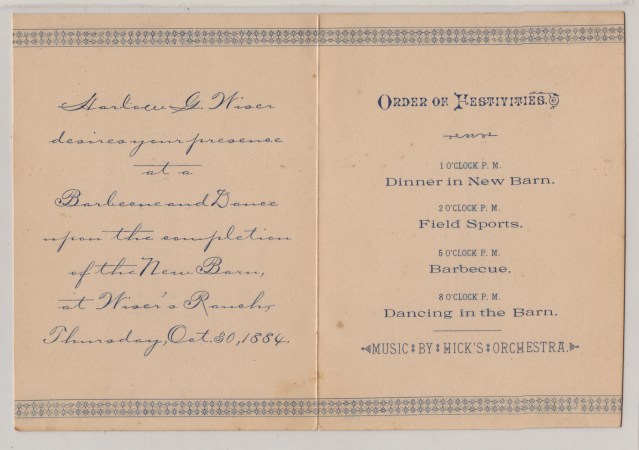 Harlow G. Wiser
desires your presence
at a
Barbecue and Dance
upon the completion
of the New Barn,
at Wiser's Ranch,
Thursday, Oct. 30, 1884.
ORDER OF FESTIVITIES.
1 O'CLOCK P. M.
Dinner in New Barn.
2 O'CLOCK P. M.
Field Sports.
5 O'CLOCK P. M.
Barbecue.
8 O'CLOCK P. M.
Dancing in the Barn.
MUSIC BY HICK'S ORCHESTRA.